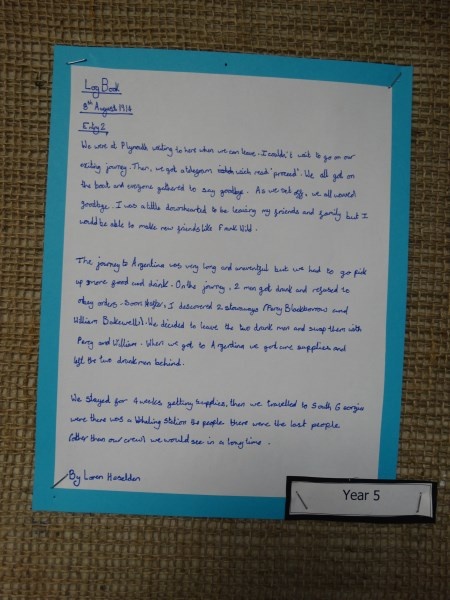 Log Book
8th August 1914
Entry 2,
We were at Plymouth waiting to here when we can leave. I couldn't wait to go on our
exiting journey. Then, we got a telegram wich read 'proceed'. We all got on
the boat and everyone gathered to say goodbye. As we set off, we all waved
goodbye. I was a little downhearted to be leaving my friends and family but I
would be able to make new friends like Frank Wild.
The journey to Argentina was very long and uneventful but we had to go pick
up more food and drink. On the journey, 2 men got drunk and refused to
obey orders. Soon After, I discovered 2 stowaways (Percy Blackborrow and
William Bakewell). We decided to leave the two drunk men and swap them with
Percy and William. When we got to Argentina we got some supplies and
left the two drunk men behind.
We stayed for 4 weeks getting supplies, then we travelled to South Georgia
were there was a Whaling station the people there were the last people
(other than our crew) we would see in a long time.
By Loren Haselden
Year 5